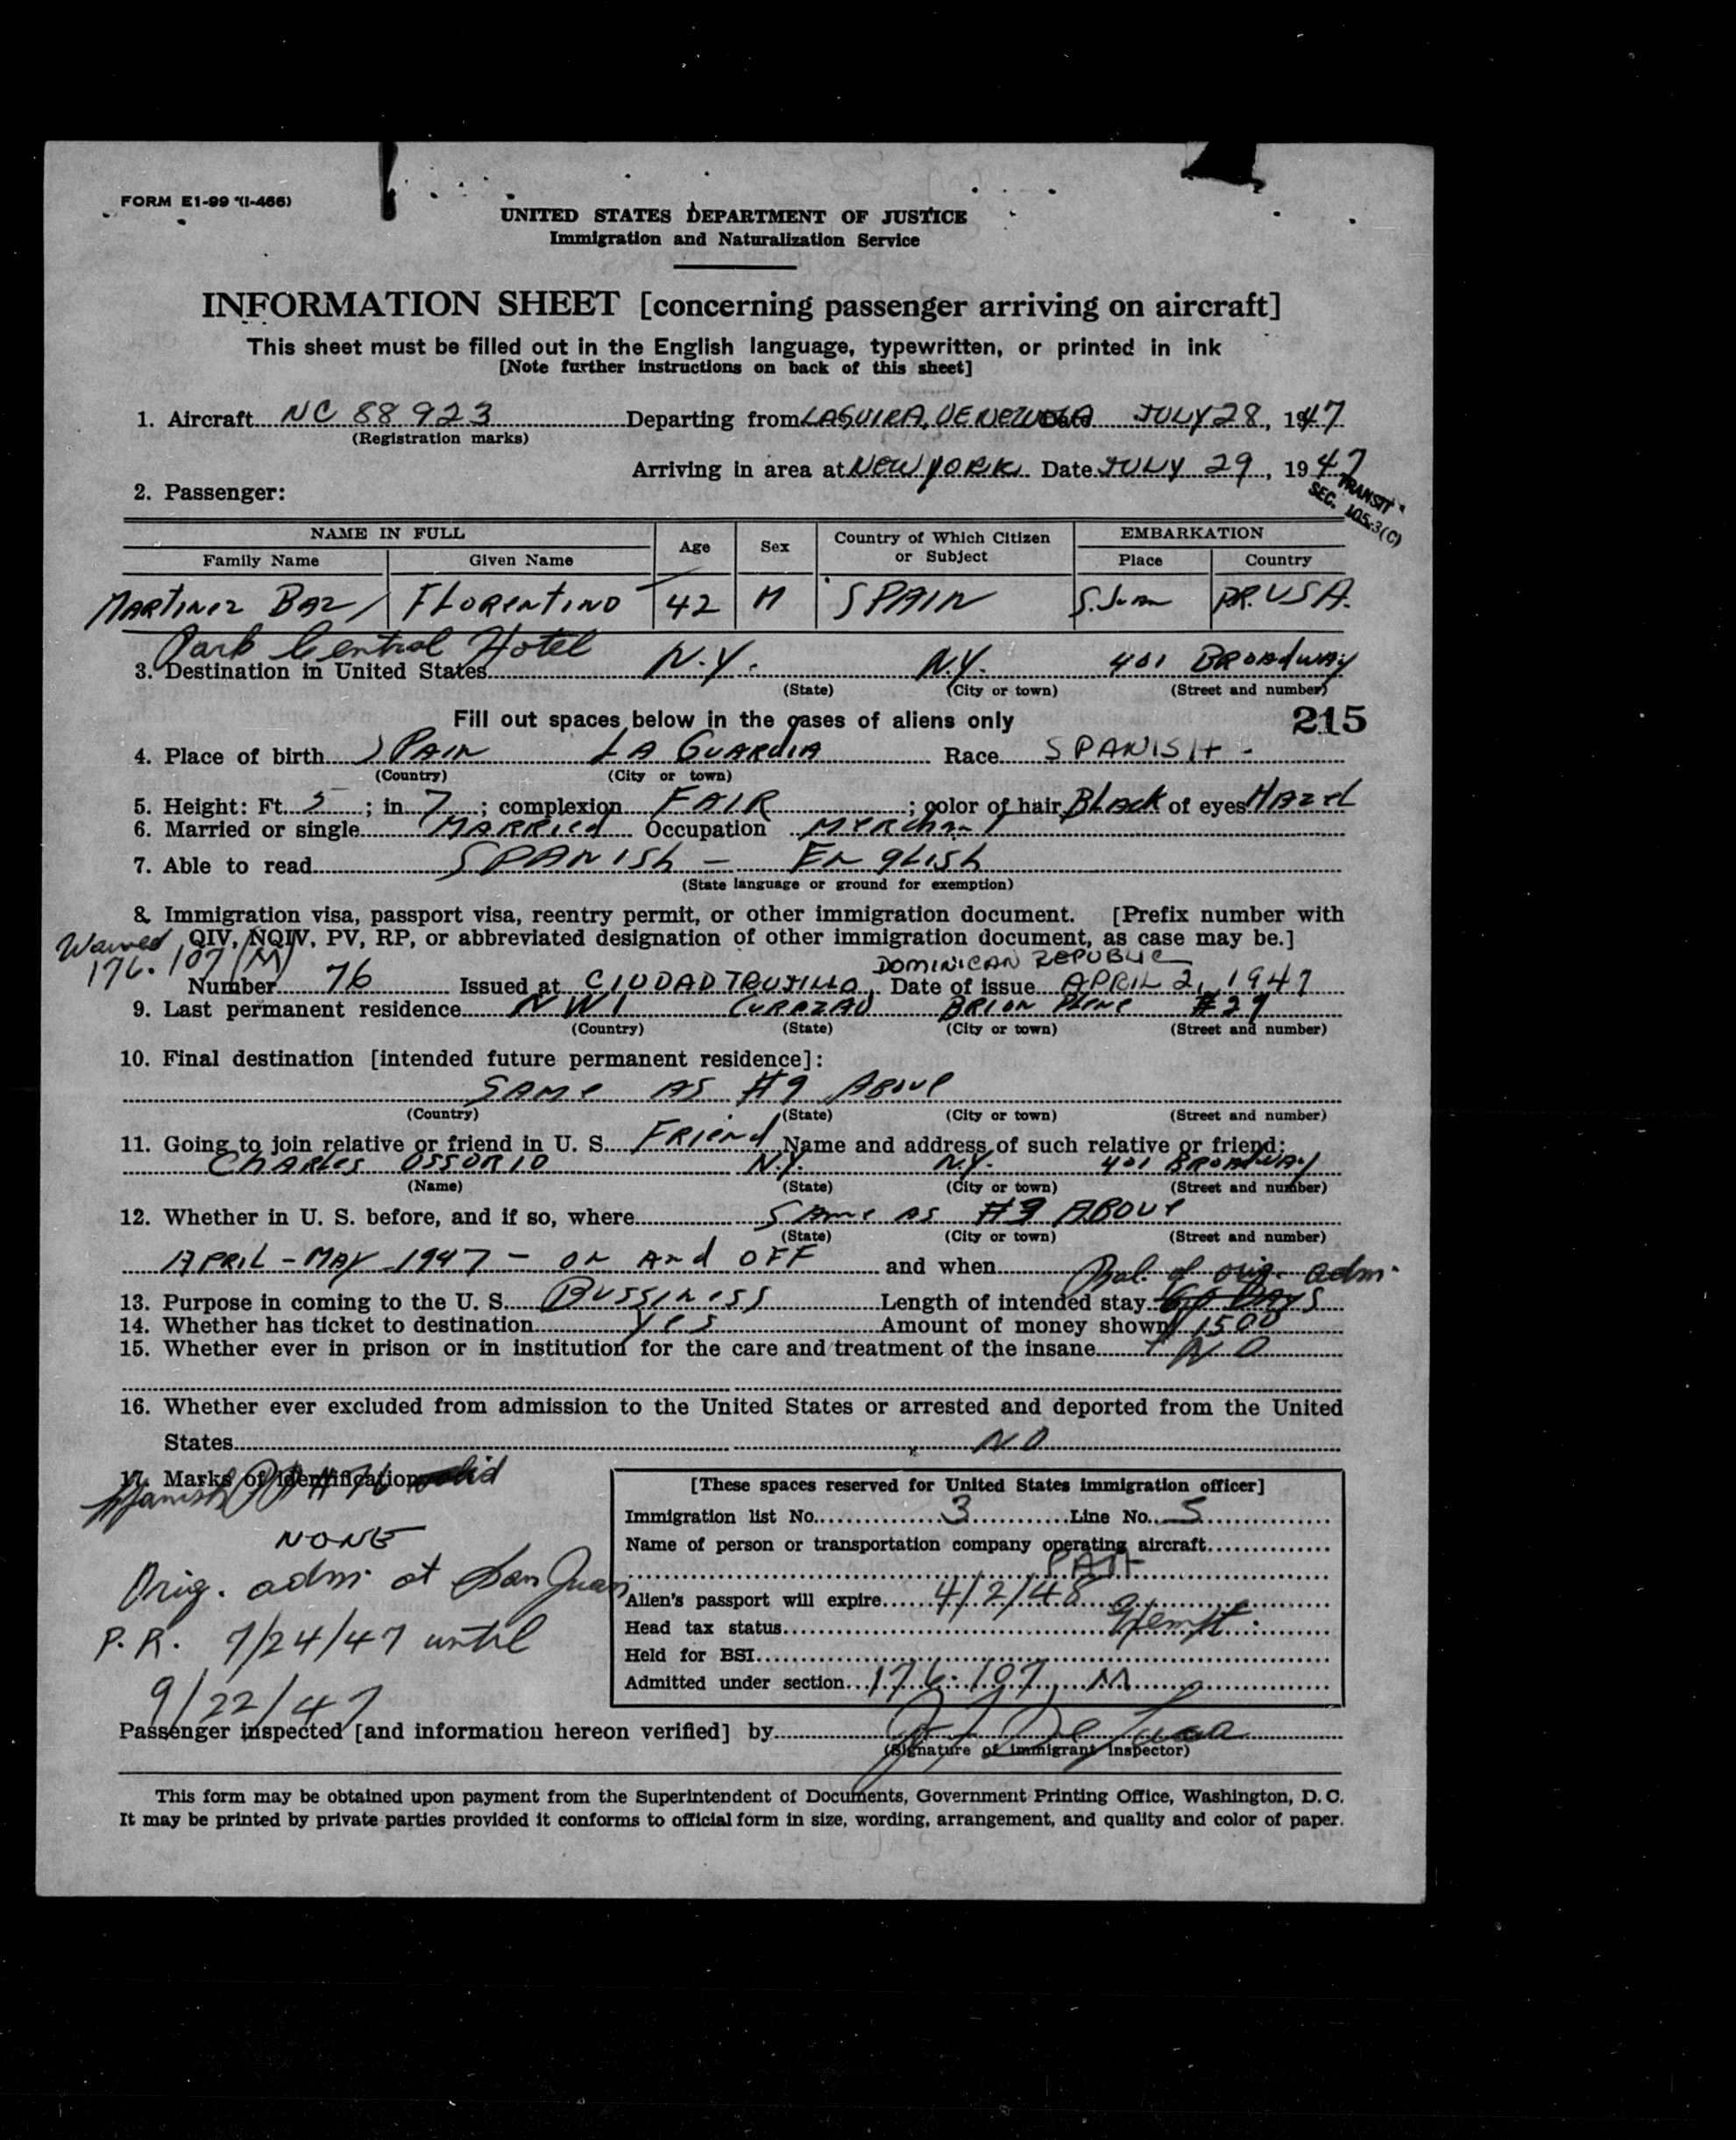 FORM E1-99 (I-466)
UNITED STATES DEPARTMENT OF JUSTICE
Immigration and Naturalization Service
INFORMATION SHEET [concerning passenger arriving on aircraft]
This sheet must be filled out in the English language, typewritten, or printed in ink
[Note further instructions on back of this sheet]
1. Aircraft NC 88923 Departing from LAGUIRA, VENEZUELA JULY 28, 1947
(Registration marks)
Arriving in area at NEW YORK Date JULY 29, 1947
TRANSIT
SEC. 105.3(C)
2. Passenger:
NAME IN FULL Age Sex Country of Which Citizen or Subject EMBARKATION
Family Name Given Name Place Country
MARTINEZ BAZ FLORENTINO 42 M SPAIN S. JUAN PR. USA.
Park Central Hotel
3. Destination in United States N.Y. N.Y. 401 BROADWAY
(State) (City or town) (Street and number)
Fill out spaces below in the cases of aliens only 215
4. Place of birth SPAIN LA GUARDIA Race SPANISH -
(Country) (City or town)
5. Height: Ft. 5; in 7; complexion FAIR; color of hair BLACK of eyes HAZEL
6. Married or single MARRIED Occupation MERCHANT
7. Able to read SPANISH - ENGLISH
(State language or ground for exemption)
8. Immigration visa, passport visa, reentry permit, or other immigration document. [Prefix number with
QIV, NQIV, PV, RP, or abbreviated designation of other immigration document, as case may be.]
Waived
176.107 (M)
DOMINICAN REPUBLIC
Number 76 Issued at CIUDAD TRUJILLO Date of issue APRIL 2, 1947
9. Last permanent residence NWI CURAZAO BRION #29
(Country) (State) (City or town) (Street and number)
10. Final destination [intended future permanent residence]:
SAME AS #9 ABOVE
(Country) (State) (City or town) (Street and number)
11. Going to join relative or friend in U. S. FRIEND Name and address of such relative or friend:
CHARLES OSSORIO N.Y. N.Y. 401 BROADWAY
(Name) (State) (City or town) (Street and number)
12. Whether in U. S. before, and if so, where SAME AS #3 ABOVE
(State) (City or town) (Street and number)
APRIL - MAY 1947 - ON AND OFF and when Bal. of orig. adm.
13. Purpose in coming to the U. S. BUSSINESS Length of intended stay 60 DAYS
14. Whether has ticket to destination YES Amount of money shown 1500
15. Whether ever in prison or in institution for the care and treatment of the insane NO
16. Whether ever excluded from admission to the United States or arrested and deported from the United
States NO
17. Marks of identification
Spanish PP #76 valid
NONE
Orig. adm. at San Juan
P.R. 7/24/47 until
9/22/47
[These spaces reserved for United States immigration officer]
Immigration list No. 3 Line No. 5
Name of person or transportation company operating aircraft
PAA
Alien's passport will expire 4/2/48
Head tax status Exempt
Held for BSI
Admitted under section 176.107 M
Passenger inspected [and information hereon verified] by
(Signature of immigrant inspector)
This form may be obtained upon payment from the Superintendent of Documents, Government Printing Office, Washington, D. C.
It may be printed by private parties provided it conforms to official form in size, wording, arrangement, and quality and color of paper.